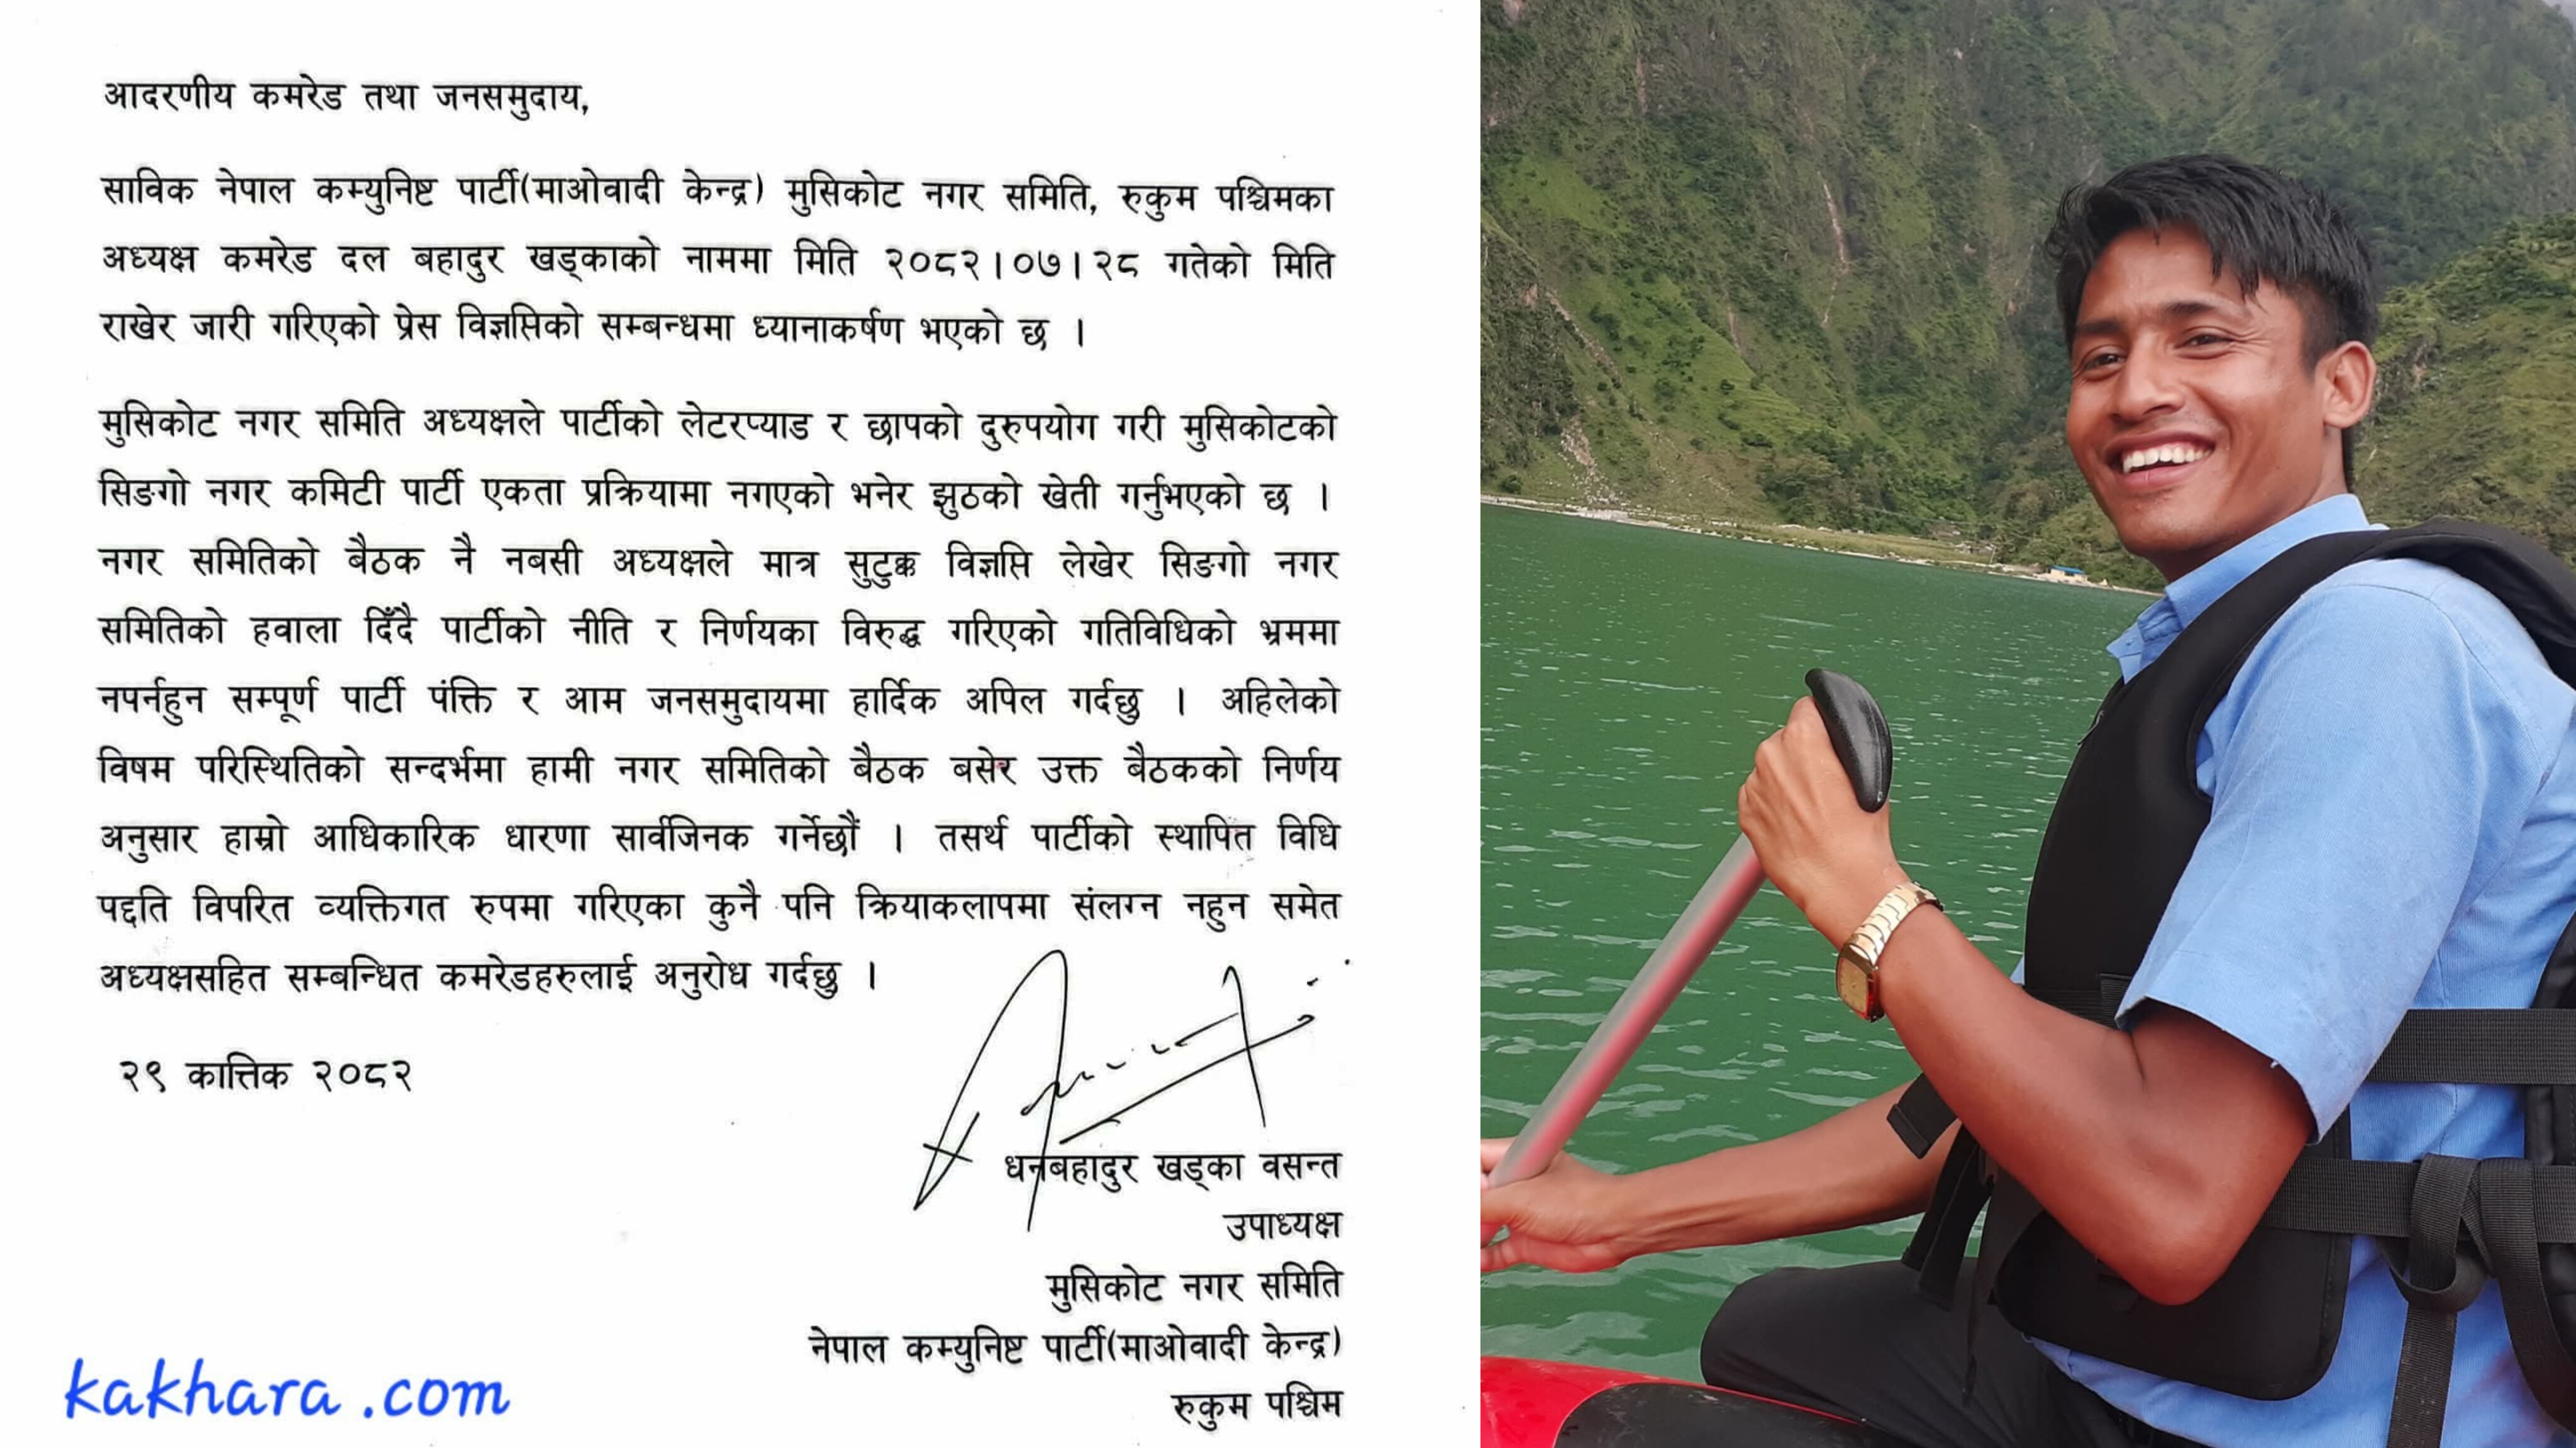 आदरणीय कमरेड तथा जनसमुदाय,
साविक नेपाल कम्युनिष्ट पार्टी(माओवादी केन्द्र) मुसिकोट नगर समिति, रुकुम पश्चिमका
अध्यक्ष कमरेड दल बहादुर खड्काको नाममा मिति २०८२।०७।२८ गतेको मिति
राखेर जारी गरिएको प्रेस विज्ञप्तिको सम्बन्धमा ध्यानाकर्षण भएको छ ।
मुसिकोट नगर समिति अध्यक्षले पार्टीको लेटरप्याड र छापको दुरुपयोग गरी मुसिकोटको
सिङगो नगर कमिटी पार्टी एकता प्रक्रियामा नगएको भनेर झुठको खेती गर्नुभएको छ ।
नगर समितिको बैठक नै नबसी अध्यक्षले मात्र सुटुक्क विज्ञप्ति लेखेर सिङगो नगर
समितिको हवाला दिँदै पार्टीको नीति र निर्णयका विरुद्ध गरिएको गतिविधिको भ्रममा
नपर्नहुन सम्पूर्ण पार्टी पंक्ति र आम जनसमुदायमा हार्दिक अपिल गर्दछु । अहिलेको
विषम परिस्थितिको सन्दर्भमा हामी नगर समितिको बैठक बसेर उक्त बैठकको निर्णय
अनुसार हाम्रो आधिकारिक धारणा सार्वजिनक गर्नेछौं । तसर्थ पार्टीको स्थापित विधि
पद्दति विपरित व्यक्तिगत रुपमा गरिएका कुनै पनि क्रियाकलापमा संलग्न नहुन समेत
अध्यक्षसहित सम्बन्धित कमरेडहरुलाई अनुरोध गर्दछु ।
२९ कात्तिक २०८२
धनबहादुर खड्का वसन्त
उपाध्यक्ष
मुसिकोट नगर समिति
नेपाल कम्युनिष्ट पार्टी(माओवादी केन्द्र)
रुकुम पश्चिम
kakhara.com